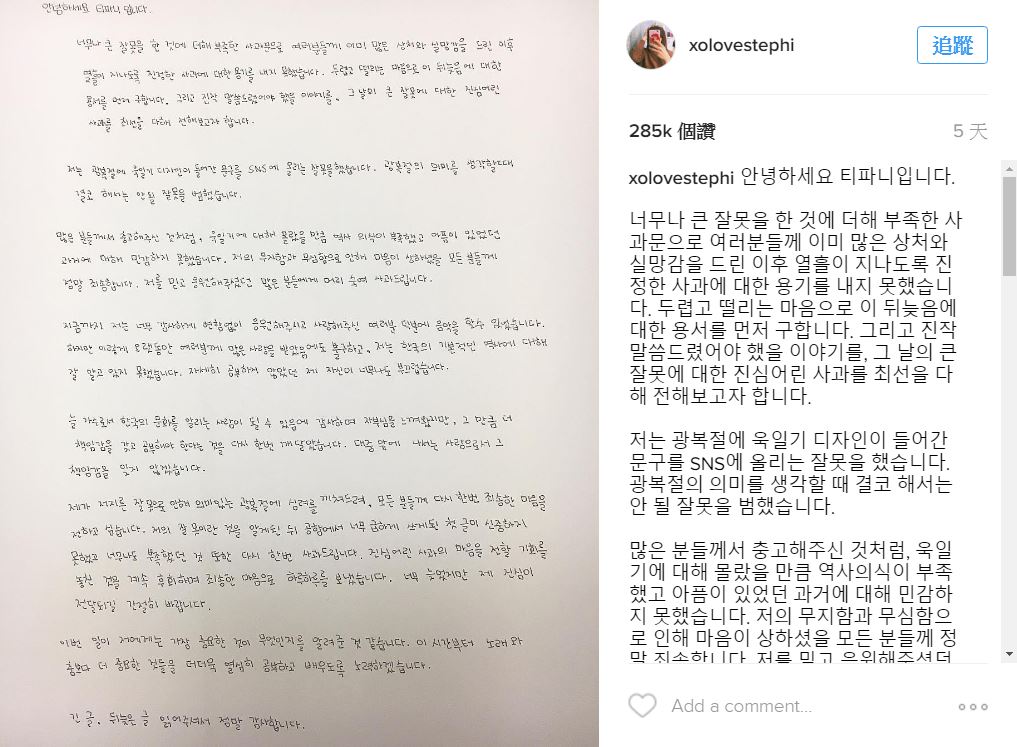 안녕하세요 티파니 입니다.
너무나 큰 잘못을 한 것에 더해 부족한 사과문으로 여러분들께 이미 많은 상처와 실망감을 드린 이후
열흘이 지나도록 진정한 사과에 대한 용기를 내지 못했습니다. 두렵고 떨리는 마음으로 이 뒤늦음에 대한
용서를 먼저 구합니다. 그리고 진작 말씀드렸어야 했을 이야기를, 그 날의 큰 잘못에 대한 진심어린
사과를 최선을 다해 전해보고자 합니다.
저는 광복절에 욱일기 디자인이 들어간 문구를 SNS에 올리는 잘못을 했습니다. 광복절의 의미를 생각할때
결코 해서는 안될 잘못을 범했습니다.
많은 분들께서 충고해주신 것처럼, 욱일기에 대해 몰랐을 만큼 역사 의식이 부족했고 아픔이 있었던
과거에 대해 민감하지 못했습니다. 저의 무지함과 무심함으로 인해 마음이 상하셨을 모든 분들께
정말 죄송합니다. 저를 믿고 응원해주셨던 많은 분들에게 머리 숙여 사과드립니다.
지금까지 저는 너무 감사하게 변함없이 응원해주시고 사랑해주신 여러분 덕분에 음악을 할수 있었습니다.
하지만 이렇게 오랫동안 여러분께 많은 사랑을 받았음에도 불구하고, 저는 한국의 기본적인 역사에 대해
잘 알고 있지 못했습니다. 자세히 공부하지 않았던 제 자신이 너무나도 부끄럽습니다.
늘 가수로서 한국의 문화를 알리는 사람이 될 수 있음에 감사하며 자부심을 느껴왔지만, 그 만큼 더
책임감을 갖고 공부해야 한다는 것을 다시 한번 깨달았습니다. 대중 앞에 나서는 사람으로서 그
책임감을 잊지 않겠습니다.
제가 저지른 잘못으로 인해 의미있는 광복절에 심려를 끼쳐드려, 모든 분들께 다시 한번 죄송한 마음을
전하고 싶습니다. 저의 잘못이란 것을 알게된 뒤 공항에서 너무 급하게 쓰게된 첫 글이 신중하지
못했고 너무나도 부족했던 것 또한 다시 한번 사과드립니다. 진심어린 사과의 마음을 전할 기회를
놓친 것을 계속 후회하며 죄송한 마음으로 하루하루를 보냈습니다. 너무 늦었지만 제 진심이
전달되길 간절히 바랍니다.
이번 일이 저에게는 가장 중요한 것이 무엇인지를 알려준 것 같습니다. 이 시간부터 노래와
춤보다 더 중요한 것들을 더더욱 열심히 공부하고 배우도록 노력하겠습니다.
긴 글, 뒤늦은 글 읽어주셔서 정말 감사합니다.
xolovestephi
追蹤
285k 個讚
5 天
xolovestephi 안녕하세요 티파니입니다.
너무나 큰 잘못을 한 것에 더해 부족한 사
과문으로 여러분들께 이미 많은 상처와
실망감을 드린 이후 열흘이 지나도록 진
정한 사과에 대한 용기를 내지 못했습니
다. 두렵고 떨리는 마음으로 이 뒤늦음에
대한 용서를 먼저 구합니다. 그리고 진작
말씀드렸어야 했을 이야기를, 그 날의 큰
잘못에 대한 진심어린 사과를 최선을 다
해 전해보고자 합니다.
저는 광복절에 욱일기 디자인이 들어간
문구를 SNS에 올리는 잘못을 했습니다.
광복절의 의미를 생각할 때 결코 해서는
안 될 잘못을 범했습니다.
많은 분들께서 충고해주신 것처럼, 욱일
기에 대해 몰랐을 만큼 역사의식이 부족
했고 아픔이 있었던 과거에 대해 민감하
지 못했습니다. 저의 무지함과 무심함으
로 인해 마음이 상하셨을 모든 분들께 정
말 죄송합니다. 저를 믿고 응원해주셨던
Add a comment...